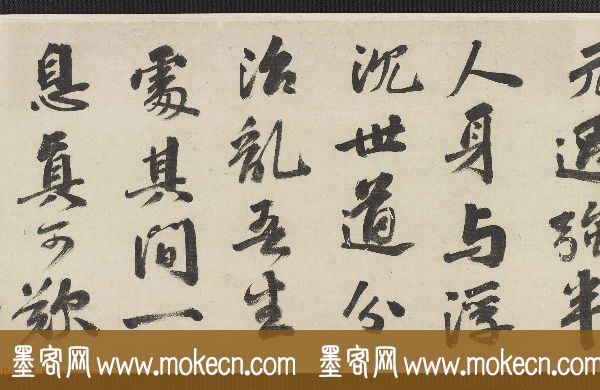 元遇强半
人身与浮
沉世道分
治乱吾生
处其间一
息真可歎
墨客网 www.mokecn.com 墨客网 www.mokecn.com